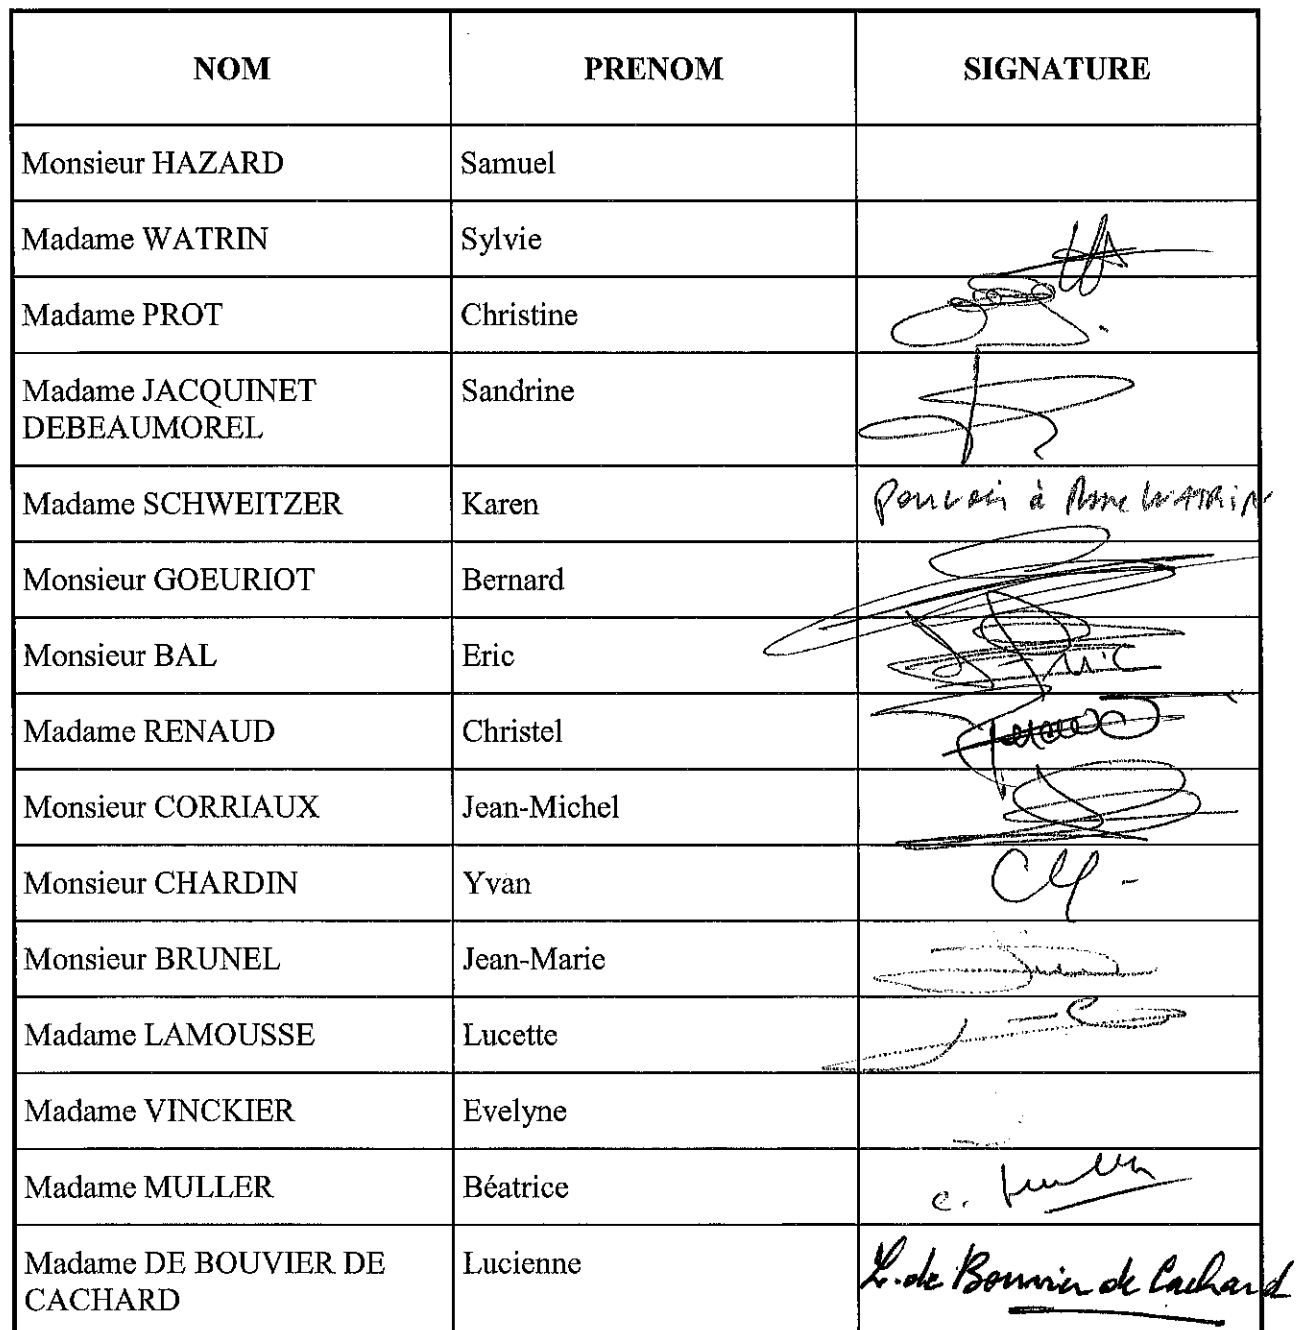 NOM PRENOM SIGNATURE
Monsieur HAZARD Samuel
Madame WATRIN Sylvie
Madame PROT Christine
Madame JACQUINET Sandrine
DEBEAUMOREL
Madame SCHWEITZER Karen Pouvoir à Mme WATRIN
Monsieur GOEURIOT Bernard
Monsieur BAL Eric
Madame RENAUD Christel
Monsieur CORRIAUX Jean-Michel
Monsieur CHARDIN Yvan
Monsieur BRUNEL Jean-Marie
Madame LAMOUSSE Lucette
Madame VINCKIER Evelyne
Madame MULLER Béatrice
Madame DE BOUVIER DE Lucienne L. de Bouvier de Cachard
CACHARD